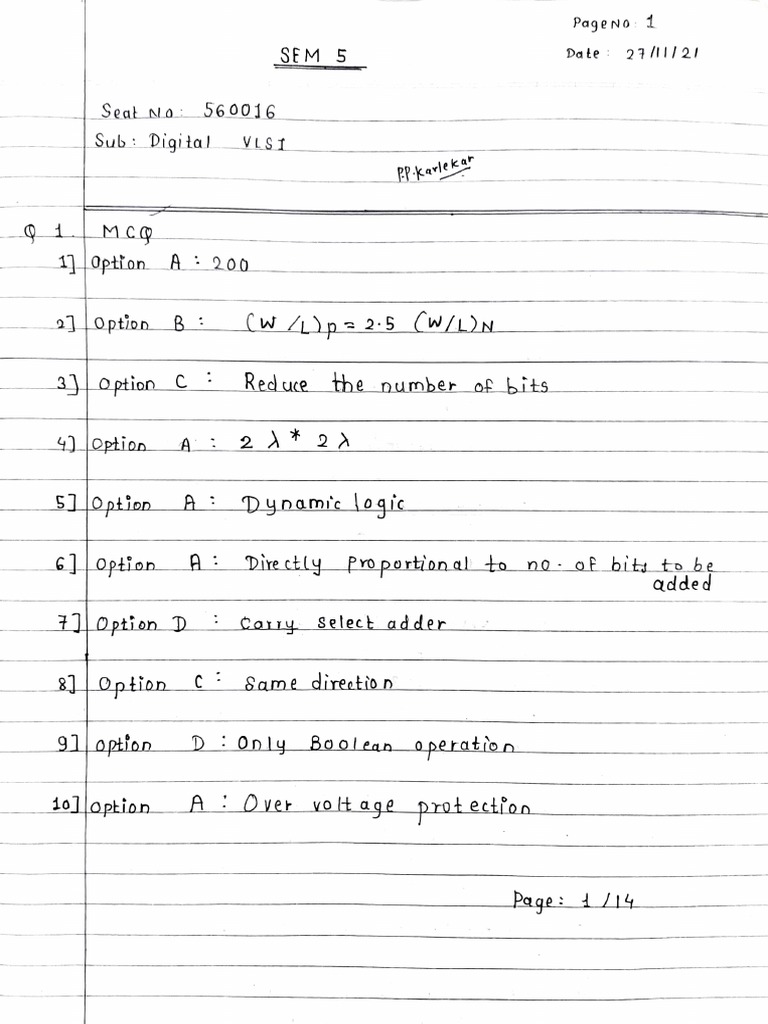 Page No: 1
SEM 5
Date: 27/11/21
Seat No: 560016
Sub: Digital VLSI
P.P.Karlekar
Q 1. MCQ
1] Option A: 200
2] Option B: (W/L)p = 2.5 (W/L)N
3] Option C: Reduce the number of bits
4] Option A: 2 λ * 2 λ
5] Option A: Dynamic logic
6] Option A: Directly proportional to no. of bits to be
added
7] Option D: Carry select adder
8] Option C: Same direction
9] Option D: Only Boolean operation
10] Option A: Over voltage protection
Page: 1/14